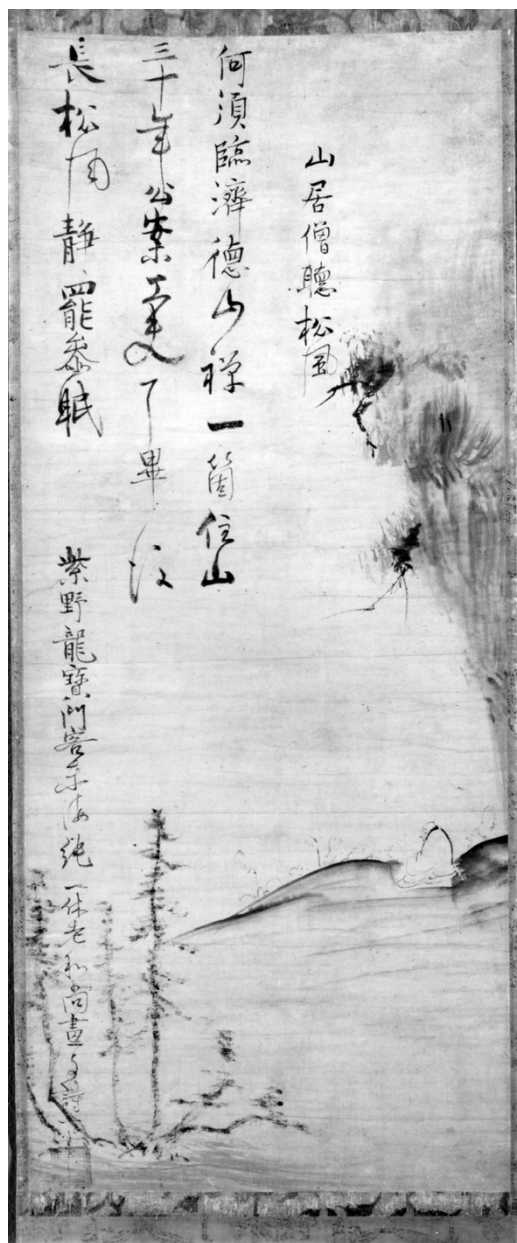 山居僧聽松風
何須臨濟德山禅一箇住山
三十年公案工夫了畢後
長松風静罷参眠
紫野龍寶門客東海純一休老和尚畫